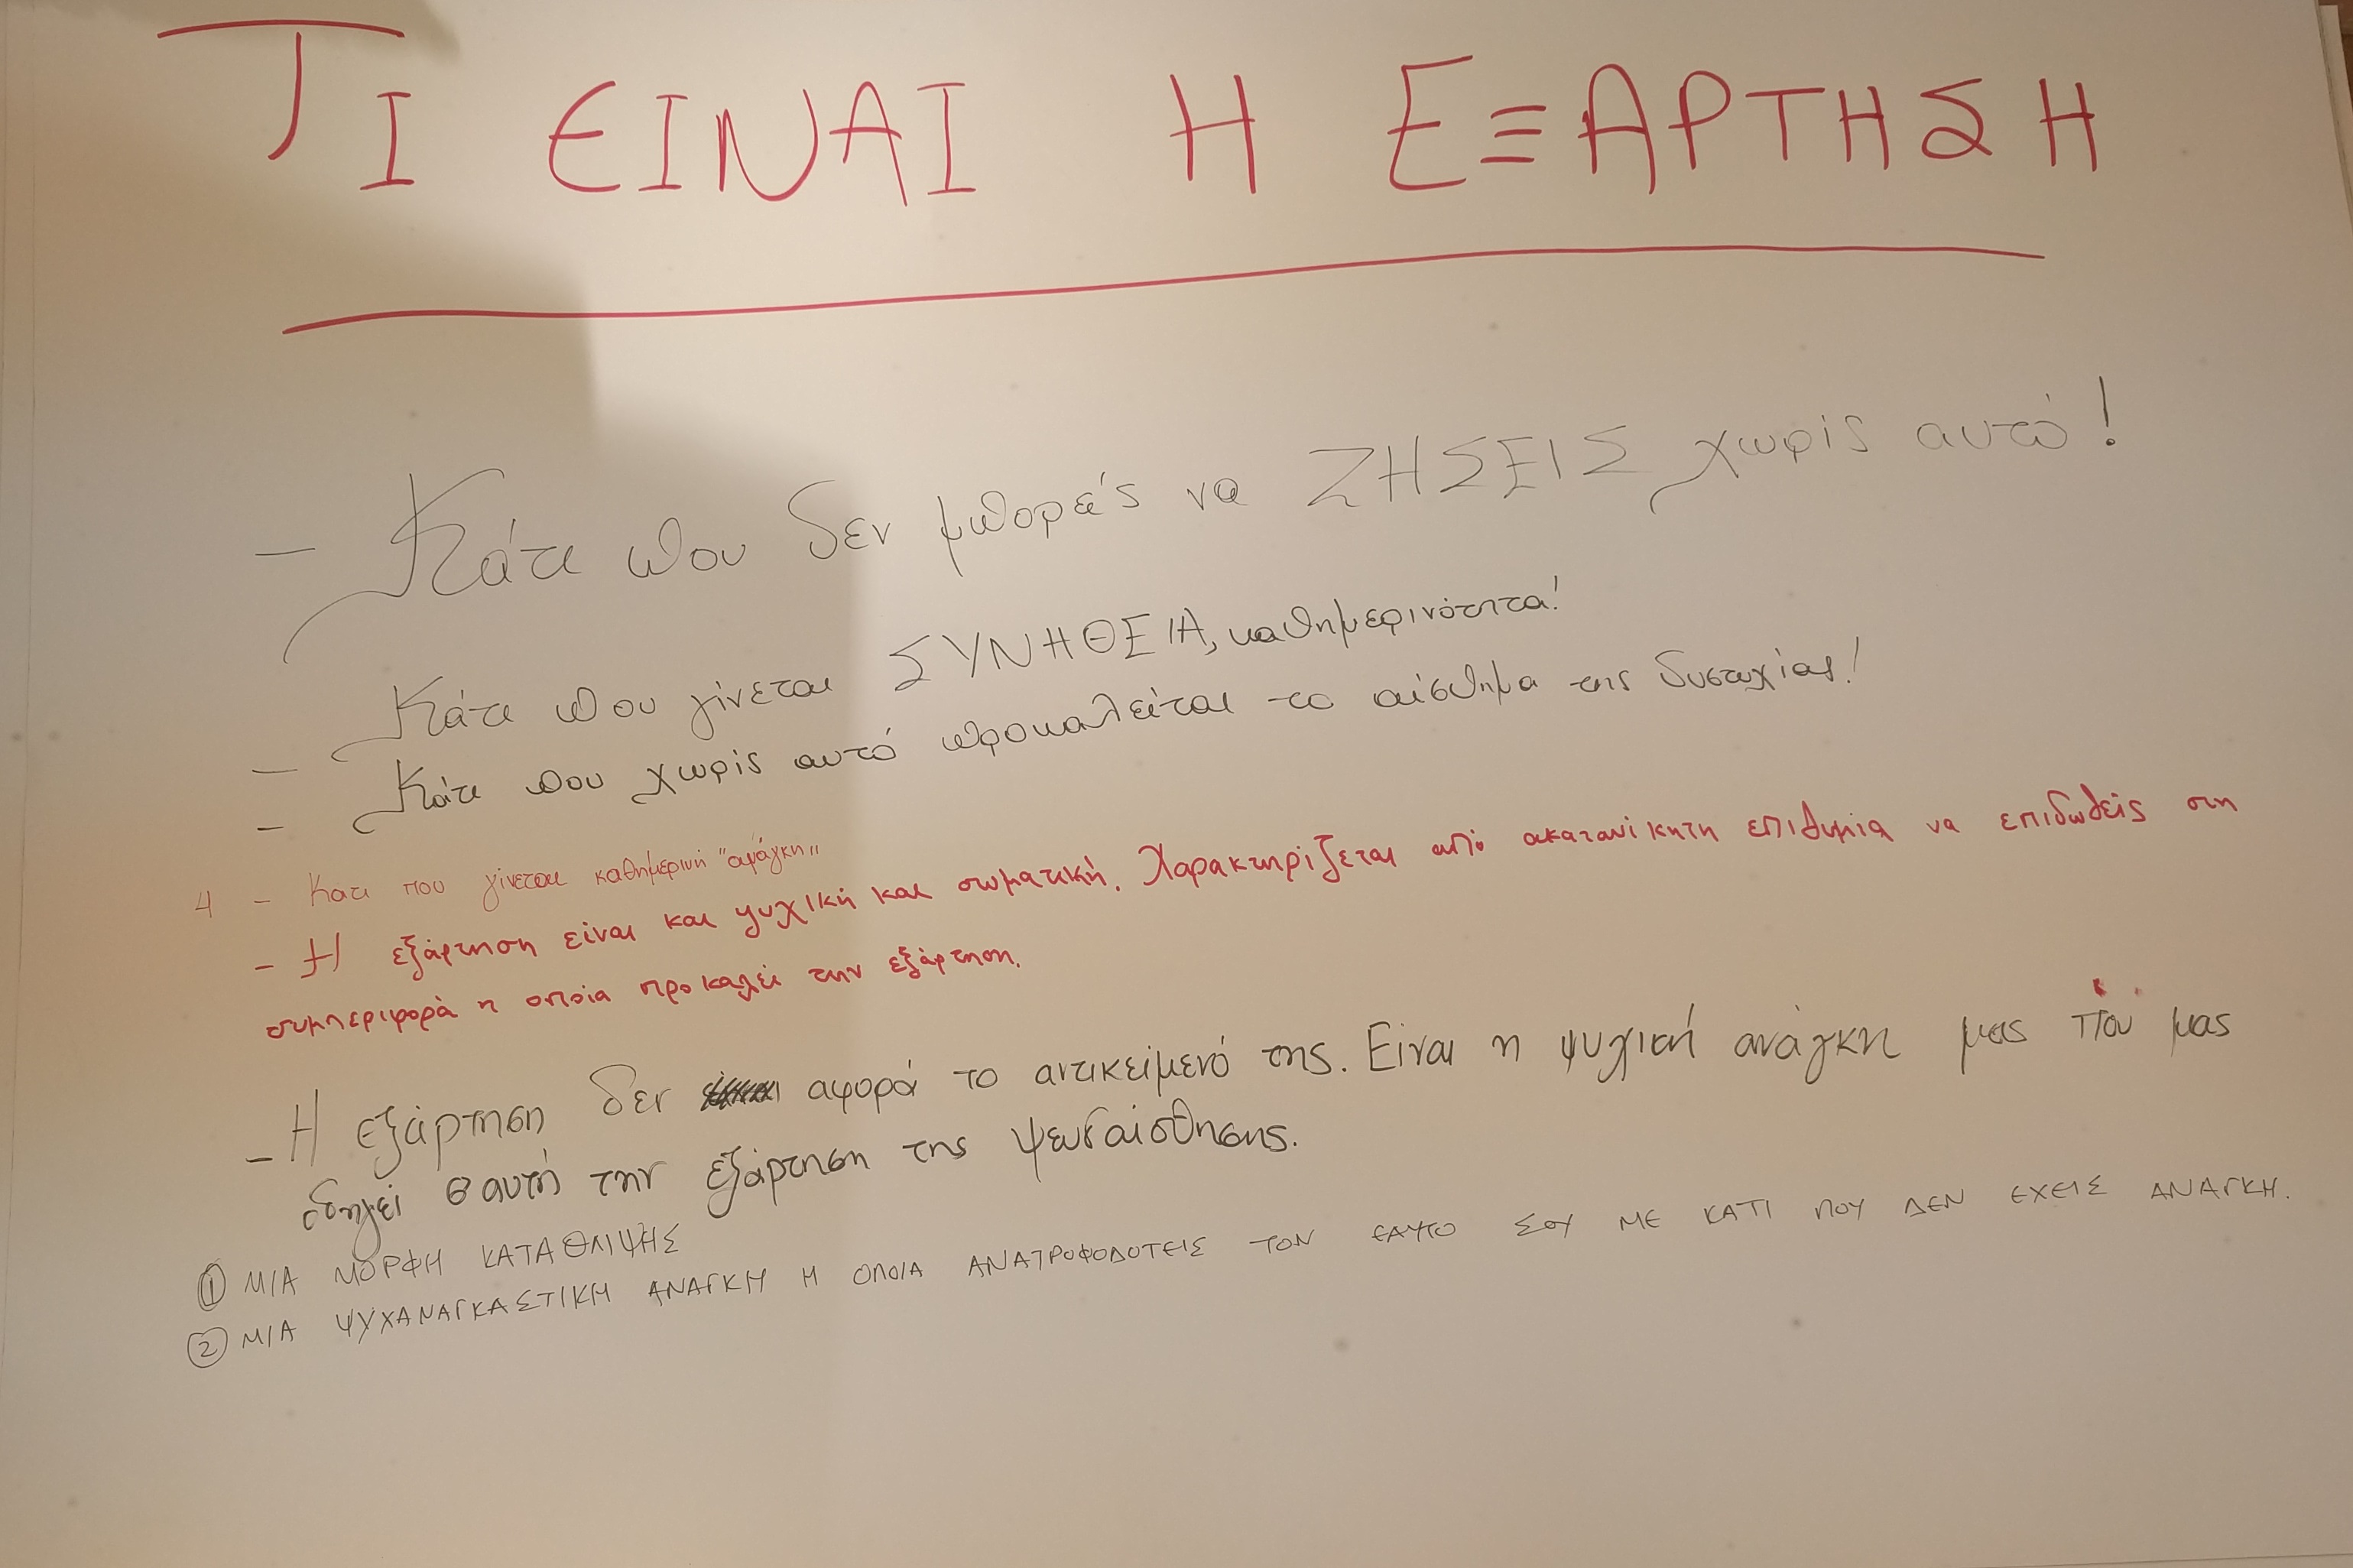 ΤΙ ΕΙΝΑΙ Η ΕΞΑΡΤΗΣΗ
- Κάτι που δεν μπορείς να ΖΗΣΕΙΣ χωρίς αυτό!
- Κάτι που γίνεται ΣΥΝΗΘΕΙΑ, καθημερινότητα!
- Κάτι που χωρίς αυτό προκαλείται το αίσθημα της δυστυχίας!
4 - Κατι που γίνεται καθημερινή "ανάγκη"
- Η εξάρτηση είναι και ψυχική και σωματική. Χαρακτηρίζεται από ακατανίκητη επιθυμία να επιδωθείς στη
συμπεριφορά η οποία προκαλεί την εξάρτηση.
- Η εξάρτηση δεν αφορά το αντικείμενό της. Είναι η ψυχική ανάγκη μας που μας
οδηγεί σ αυτή την εξάρτηση της ψευδαίσθησης.
① ΜΙΑ ΜΟΡΦΗ ΚΑΤΑΘΛΙΨΗΣ
② ΜΙΑ ΨΥΧΑΝΑΓΚΑΣΤΙΚΗ ΑΝΑΓΚΗ Η ΟΠΟΙΑ ΑΝΑΤΡΟΦΟΔΟΤΕΙΣ ΤΟΝ ΕΑΥΤΟ ΣΟΥ ΜΕ ΚΑΤΙ ΠΟΥ ΔΕΝ ΕΧΕΙΣ ΑΝΑΓΚΗ.